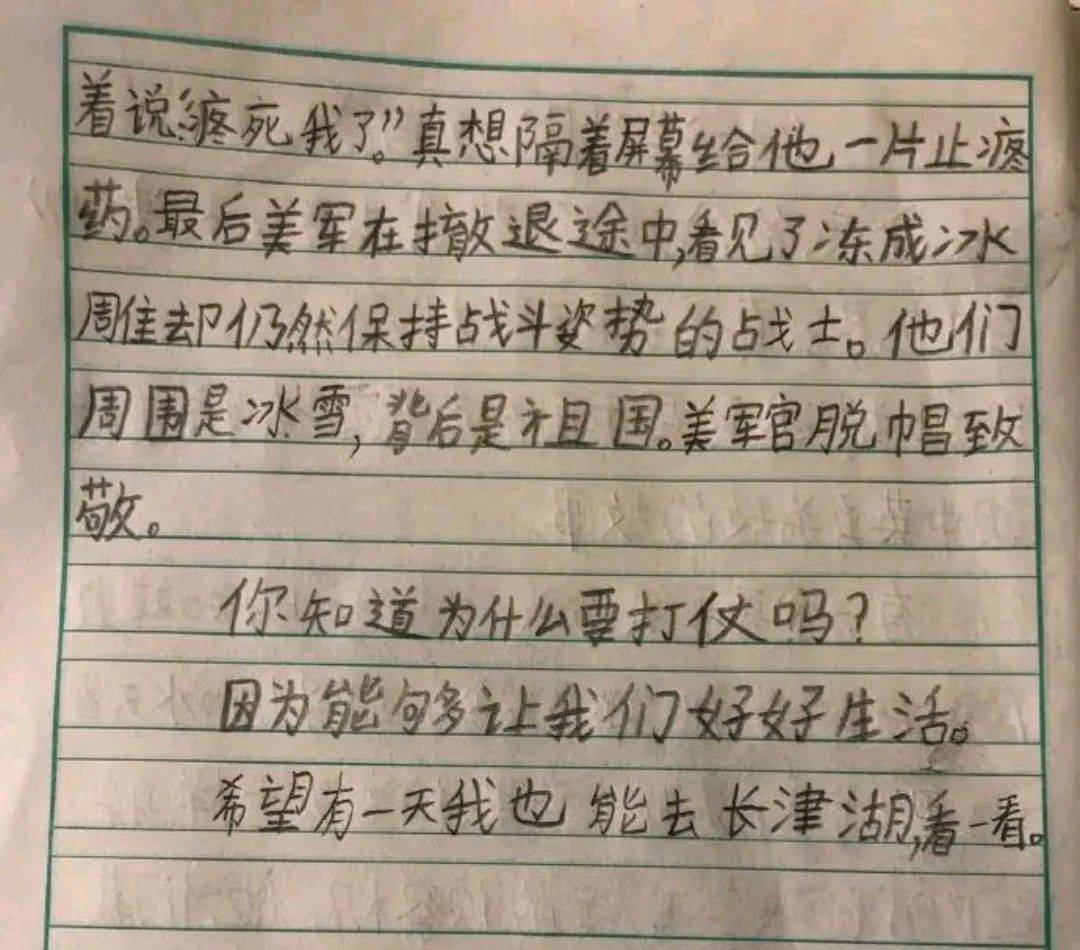 着说“疼死我了。”真想隔着屏幕给他一片止疼
药。最后美军在撤退途中,看见了冻成冰
雕住却仍然保持战斗姿势的战士。他们
周围是冰雪,背后是祖国。美军官脱帽致
敬。
你知道为什么要打仗吗?
因为能够多让我们好好生活。
希望有一天我也能去长津湖,看一看。